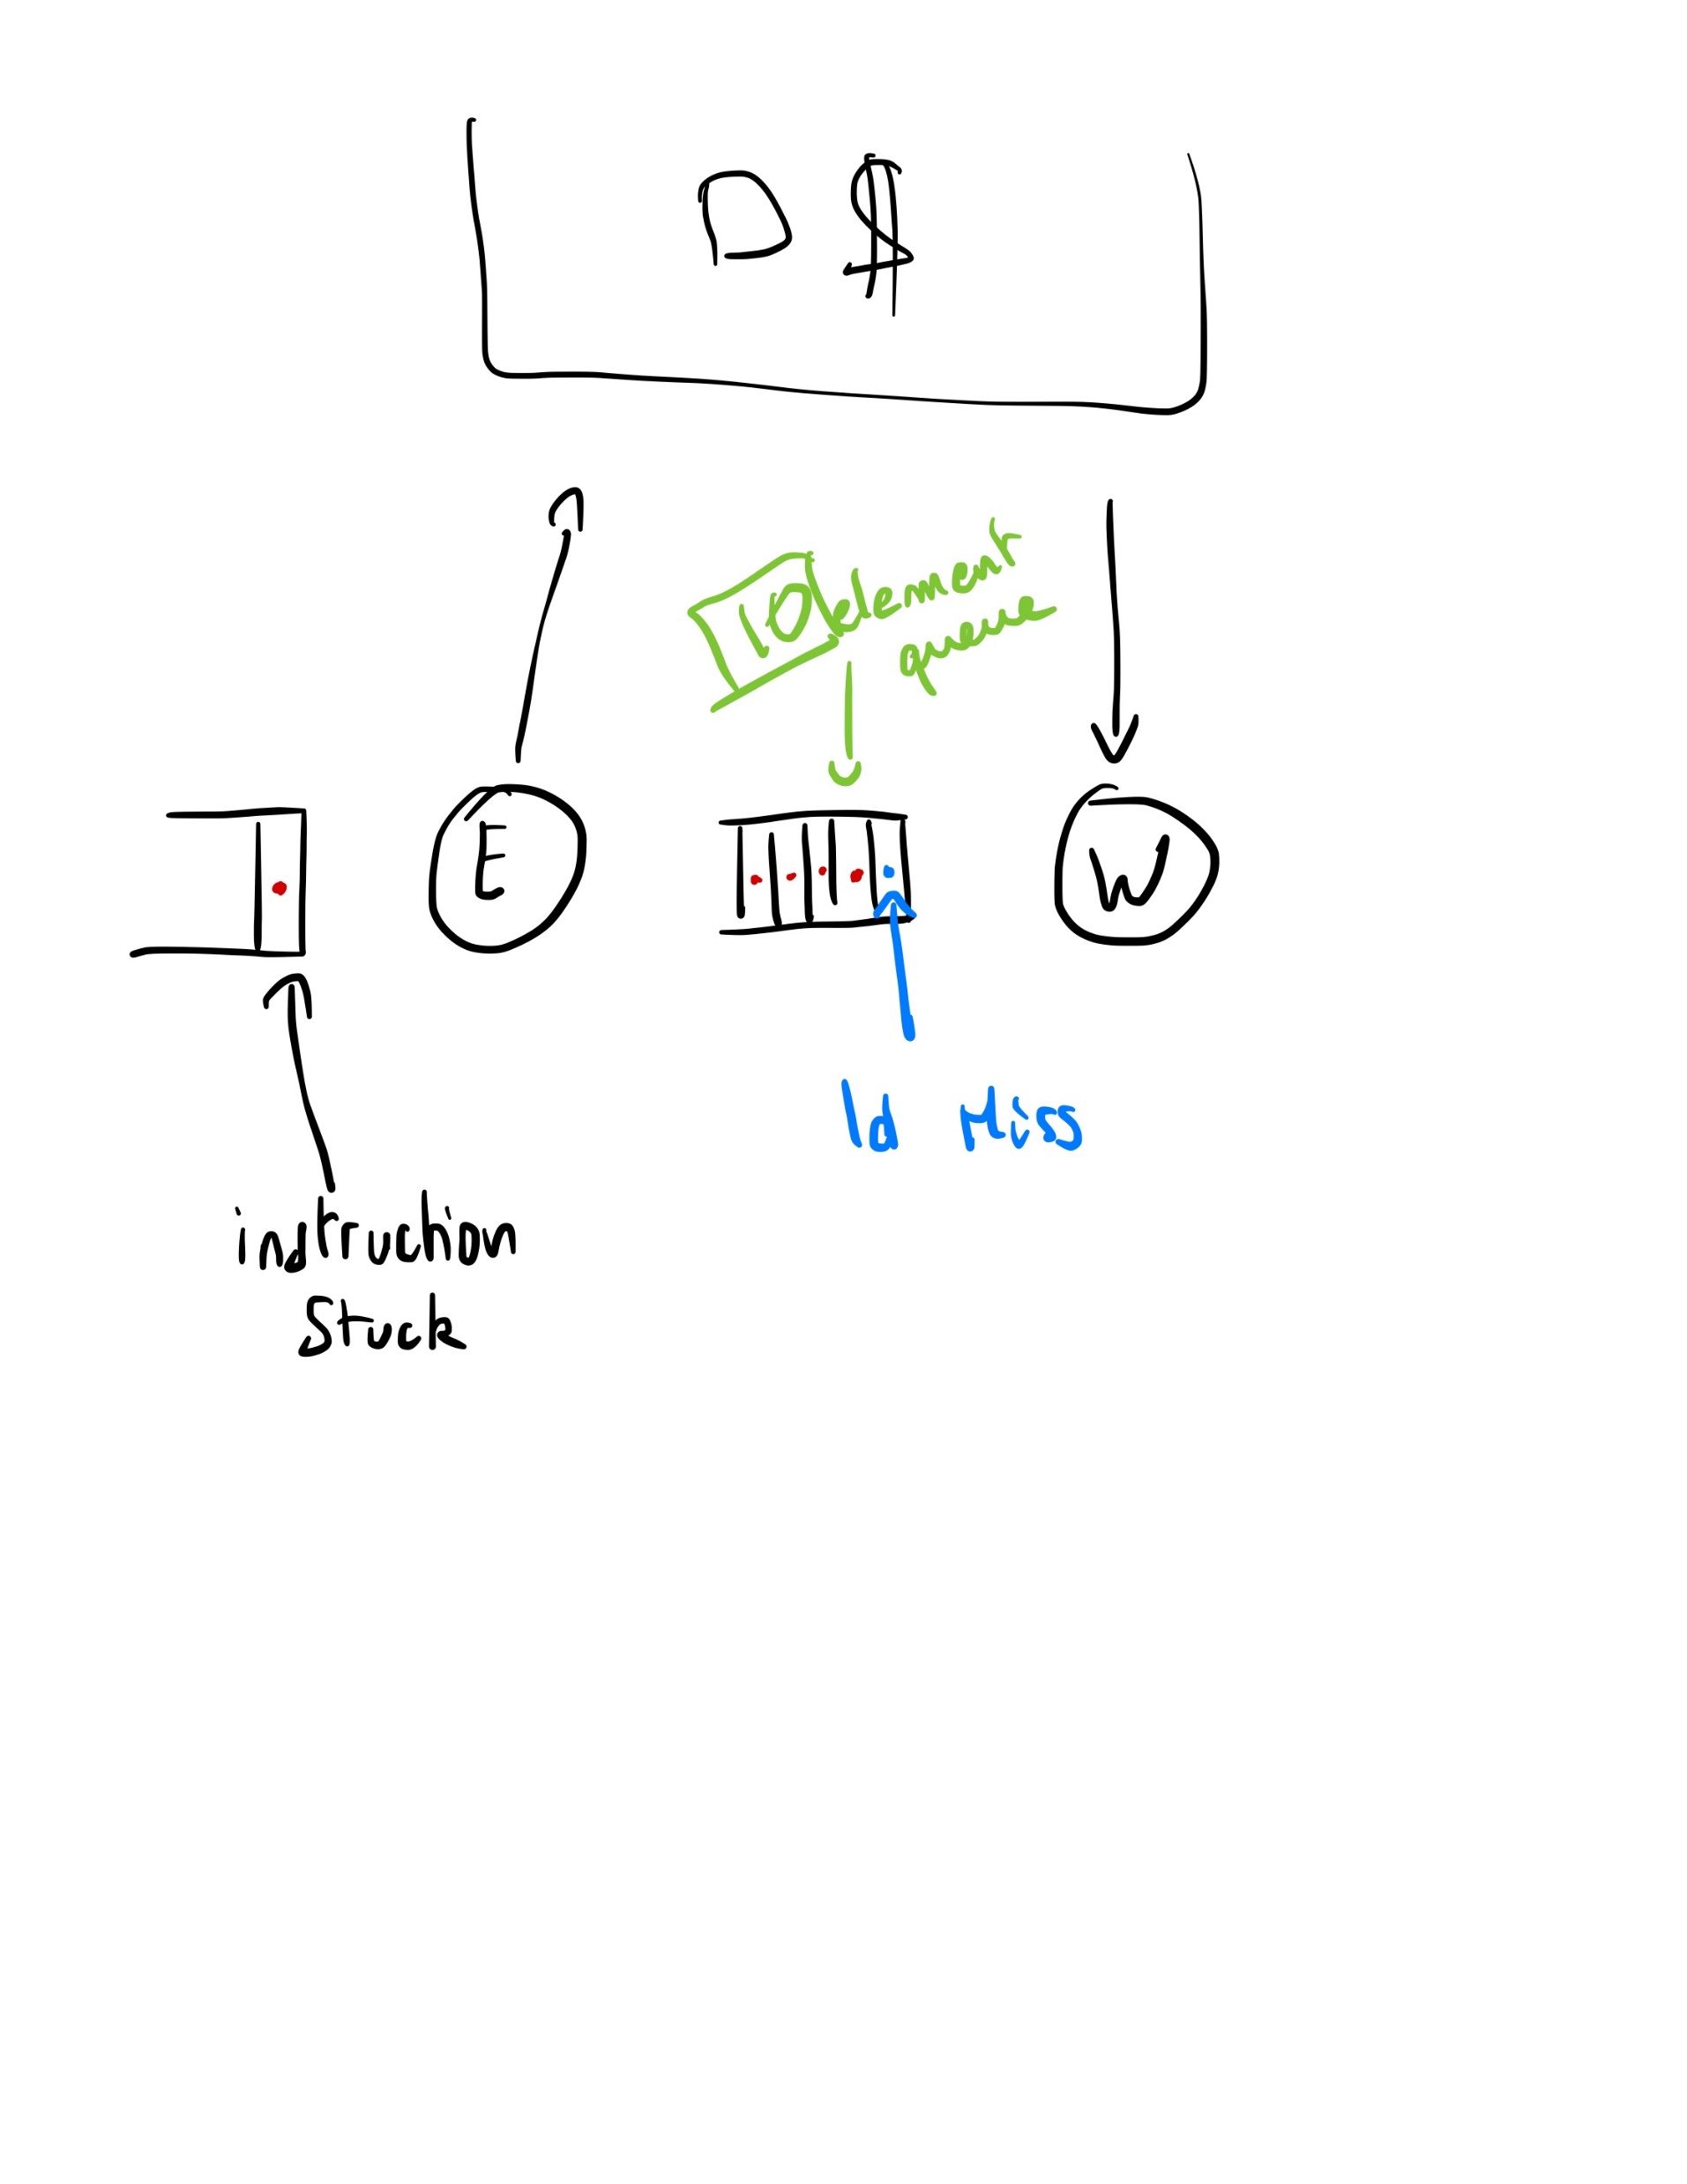 D $
10 element
queue
E
W
ld Miss
instruction
Stuck